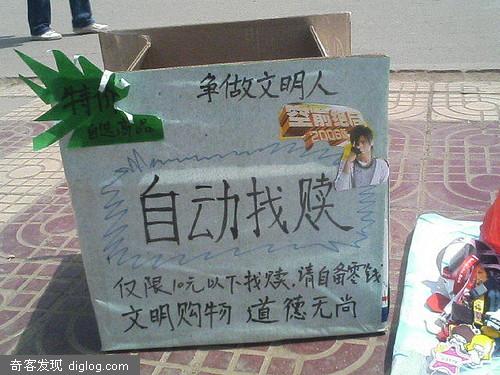 争做文明人
特价
自选商品
空前绝后
2006年
自动找赎
仅限10元以下找赎,请自备零钱
文明购物 道德无尚
奇客发现 diglog.com